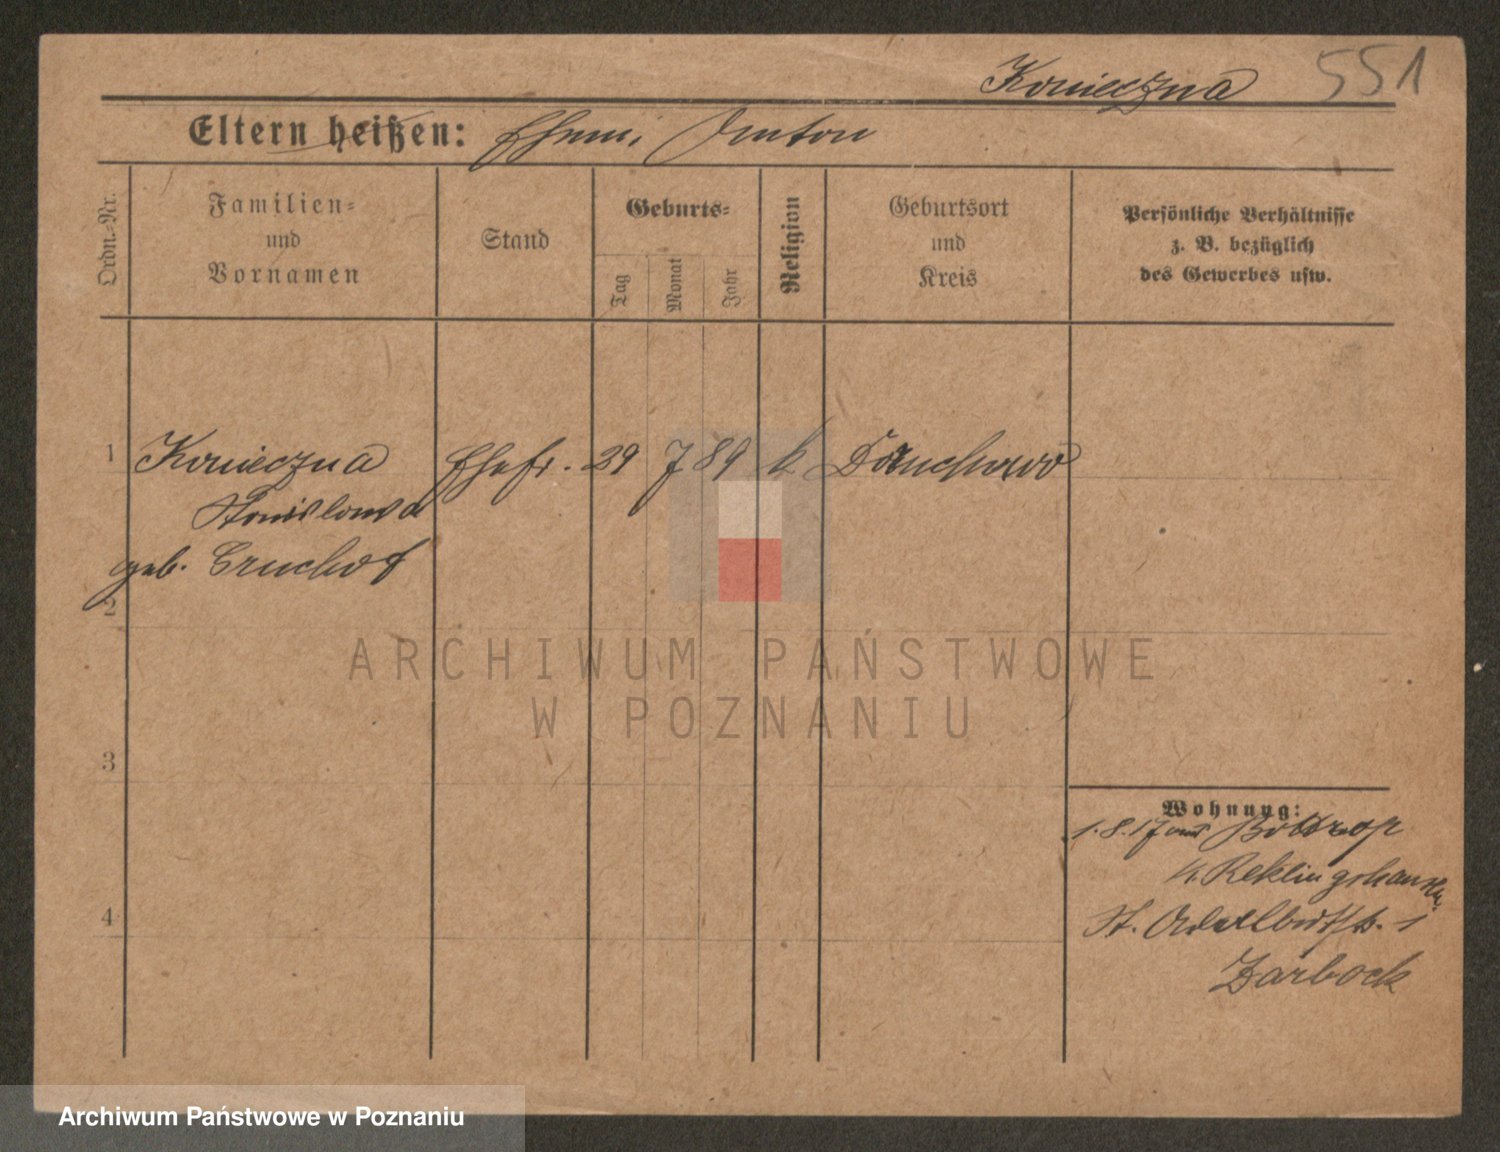 Konieczna 551
Eltern heißen: Ehem. Anton
Ordn.-Nr.
Familien-
und
Vornamen
Stand
Geburts-
Tag
Monat
Jahr
Religion
Geburtsort
und
Kreis
Persönliche Verhältnisse
z. B. bezüglich
des Gewerbes usw.
1 Konieczna Ehefr. 29 7 89 k.
Stanislawa
geb.
2
ARCHIWUM PAŃSTWOWE
W POZNANIU
3
Wohnung:
1.8.17 aus Bottrop
4
St. Adalbertstr. 1
Zarbock
Archiwum Państwowe w Poznaniu